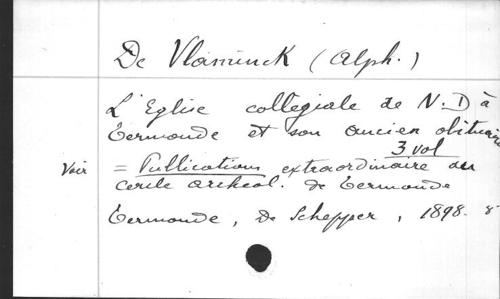 De Vlaminck (Alph.)
L'Eglise collégiale de N. D à
Termonde et son ancien obituaire
3 vol
Voir = Publications extraordinaire du
cercle archéol. de Termonde
Termonde, De Schepper, 1898. 8